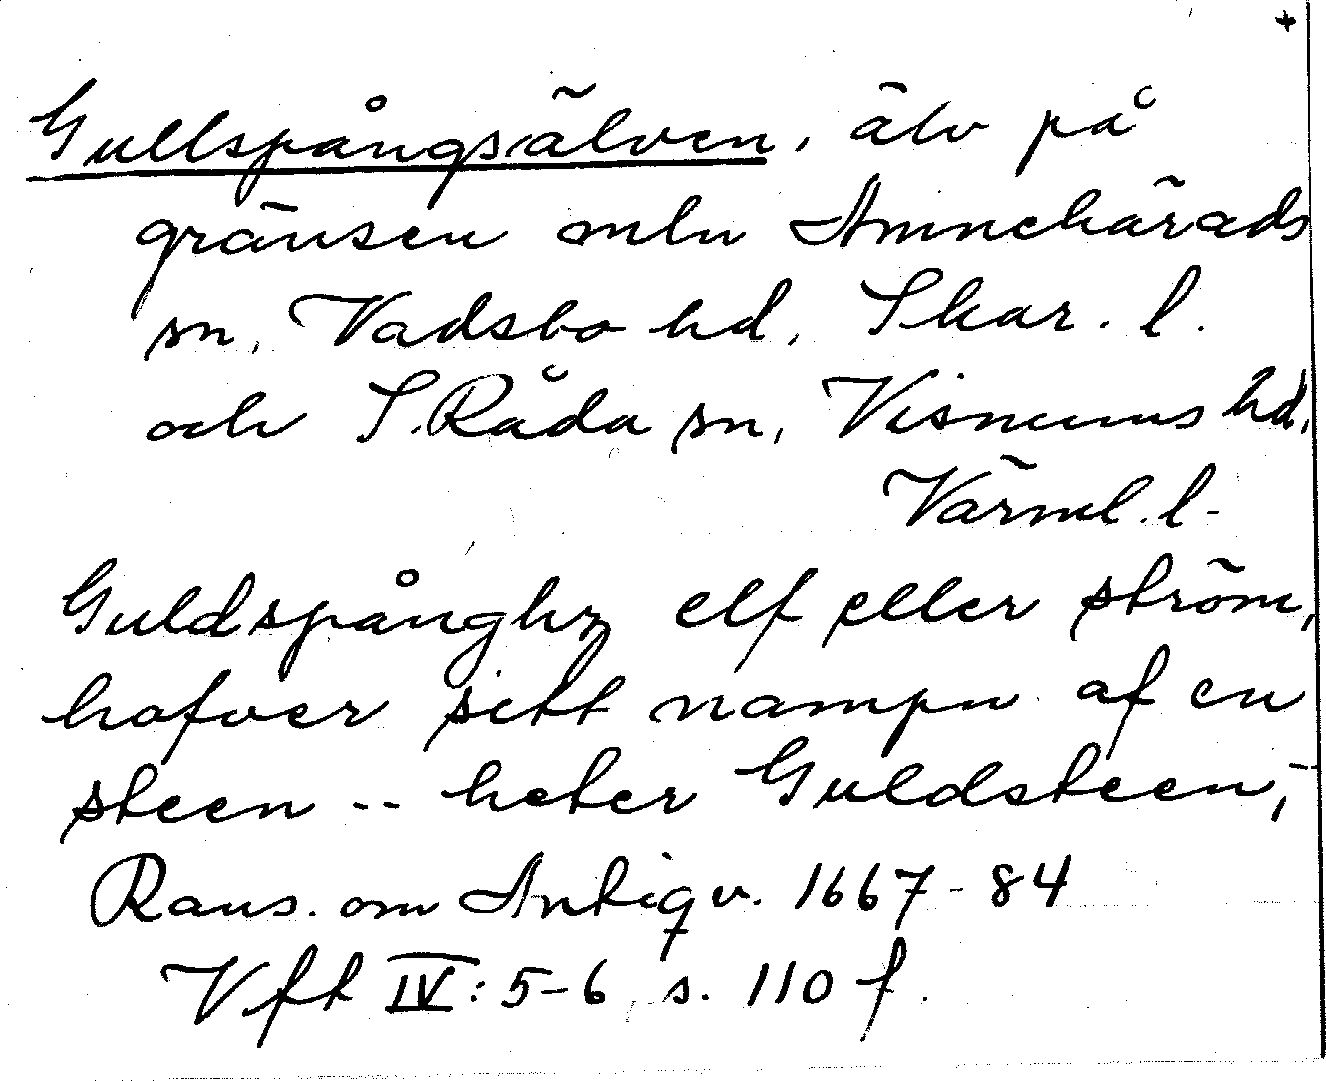 +
Gullspångsälven, älv på
gränsen mln Amnehärads
sn, Vadsbo hd, Skar. l.
och S. Råda sn, Visnums hd,
Värml. l.
Guldspånghz elf eller ström,
hafver sitt nampn af en
steen -- heter Guldsteen,
Rans. om Antiqv. 1667-84
Vft IV: 5-6 s. 110 f.